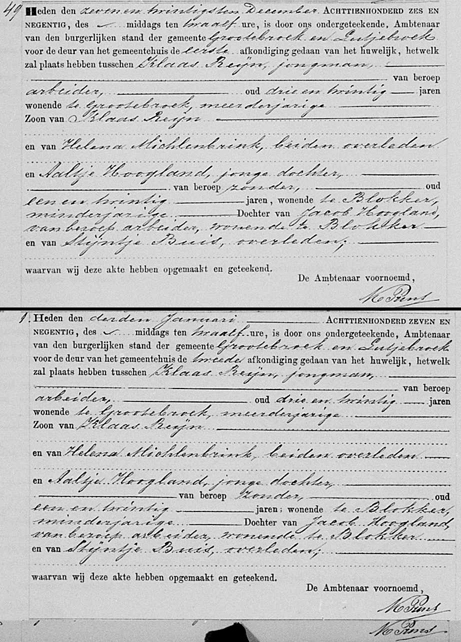 49
Heden den zeven en twintigsten December ACHTTIENHONDERD ZES EN
NEGENTIG, des middags ten twaalf ure, is door ons ondergeteekende, Ambtenaar
van den burgerlijken stand der gemeente Grootebroek en Lutjebroek
voor de deur van het gemeentehuis de eerste afkondiging gedaan van het huwelijk, hetwelk
zal plaats hebben tusschen Klaas Reijn, jongman,
van beroep
arbeider, oud drie en twintig jaren
wonende te Grootebroek, meerderjarige
Zoon van Klaas Reijn
en van Helena Michlenbrink, beiden overleden
en Aaltje Hoogland, jonge dochter,
van beroep zonder, oud
een en twintig jaren, wonende te Blokker,
minderjarige Dochter van Jacob Hoogland,
van beroep arbeider, wonende te Blokker
en van Stijntje Buis, overleden;
waarvan wij deze akte hebben opgemaakt en geteekend.
De Ambtenaar voornoemd,
1. Heden den derden Januari ACHTTIENHONDERD ZEVEN EN
NEGENTIG, des middags ten twaalf ure, is door ons ondergeteekende, Ambtenaar
van den burgerlijken stand der gemeente Grootebroek en Lutjebroek
voor de deur van het gemeentehuis de tweede afkondiging gedaan van het huwelijk, hetwelk
zal plaats hebben tusschen Klaas Reijn, jongman,
van beroep
arbeider, oud drie en twintig jaren
wonende te Grootebroek, meerderjarige
Zoon van Klaas Reijn
en van Helena Michlenbrink, beiden overleden
en Aaltje Hoogland, jonge dochter,
van beroep zonder, oud
een en twintig jaren, wonende te Blokker,
minderjarige Dochter van Jacob Hoogland,
van beroep arbeider, wonende te Blokker
en van Stijntje Buis, overleden;
waarvan wij deze akte hebben opgemaakt en geteekend.
De Ambtenaar voornoemd,